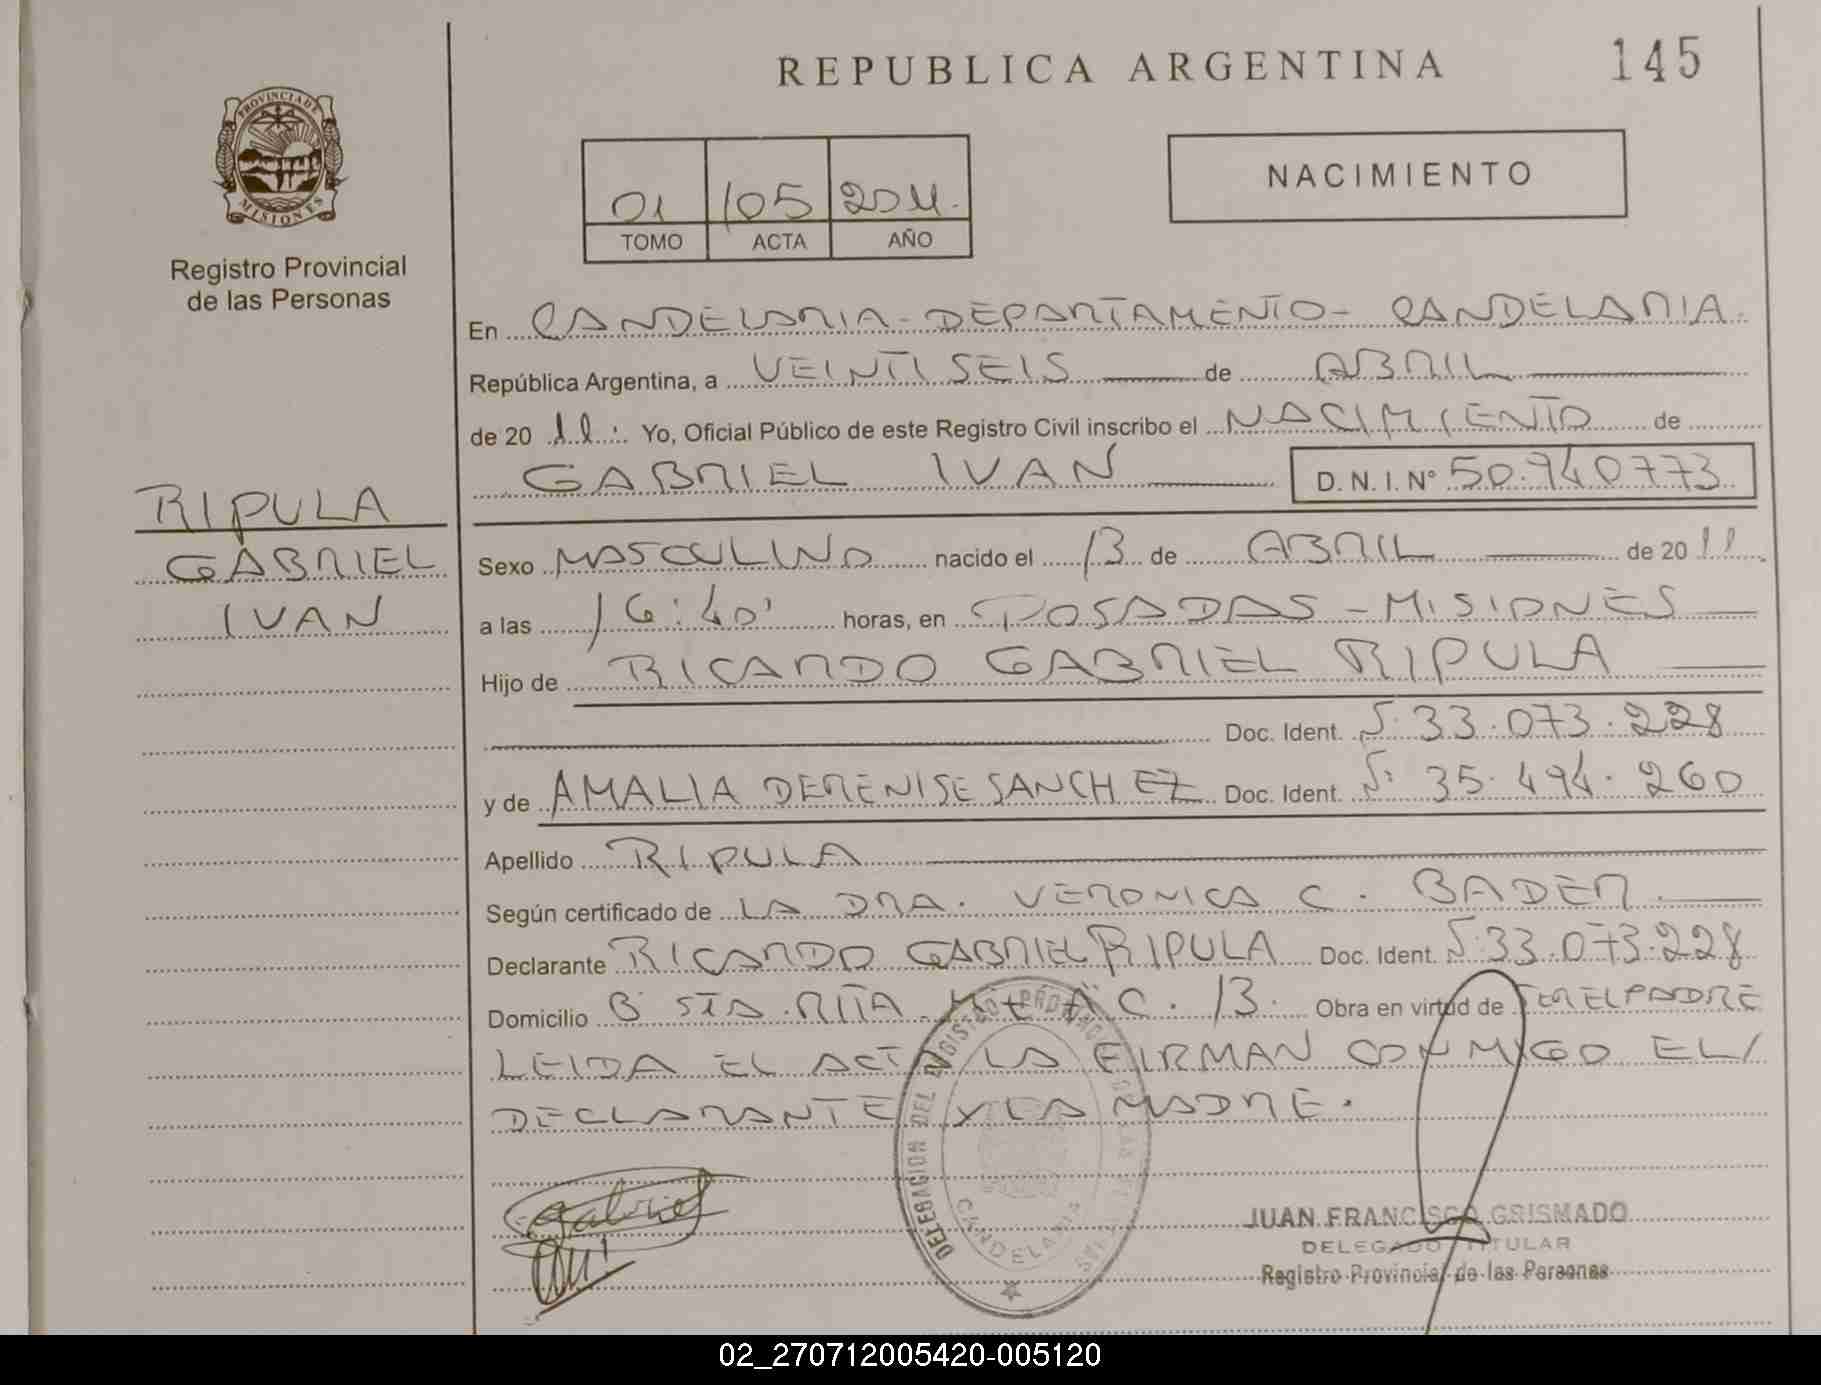 REPUBLICA ARGENTINA
145
PROVINCIA DE
MISIONES
Registro Provincial
de las Personas
01 105 2011.
TOMO ACTA AÑO
NACIMIENTO
En CANDELARIA - DEPARTAMENTO - CANDELARIA.
República Argentina, a VEINTISEIS de ABRIL
de 20 11. Yo, Oficial Público de este Registro Civil inscribo el NACIMIENTO de
GABRIEL IVAN D.N.I. Nº 50.940773
RIPULA
GABRIEL
IVAN
Sexo MASCULINO nacido el 13 de ABRIL de 20 11.
a las 16:40' horas, en POSADAS - MISIONES
Hijo de RICARDO GABRIEL RIPULA
Doc. Ident. 33.073.228
y de AMALIA DERENISE SANCHEZ Doc. Ident. 35.494.260
Apellido RIPULA
Según certificado de LA DRA. VERONICA C. BADER
Declarante RICARDO GABRIEL RIPULA Doc. Ident. 33.073.228
Domicilio Bº STA. RITA C. 13. Obra en virtud de SER EL PADRE
LEIDA EL ACTA LA FIRMAN CONMIGO EL/
DECLARANTE Y LA MADRE.
DELEGACION DEL REGISTRO PROVINCIAL DE LAS
CANDELARIA
Gabriel
JUAN FRANCISCO GRISMADO
DELEGADO TITULAR
Registro Provincial de las Personas
02_270712005420-005120